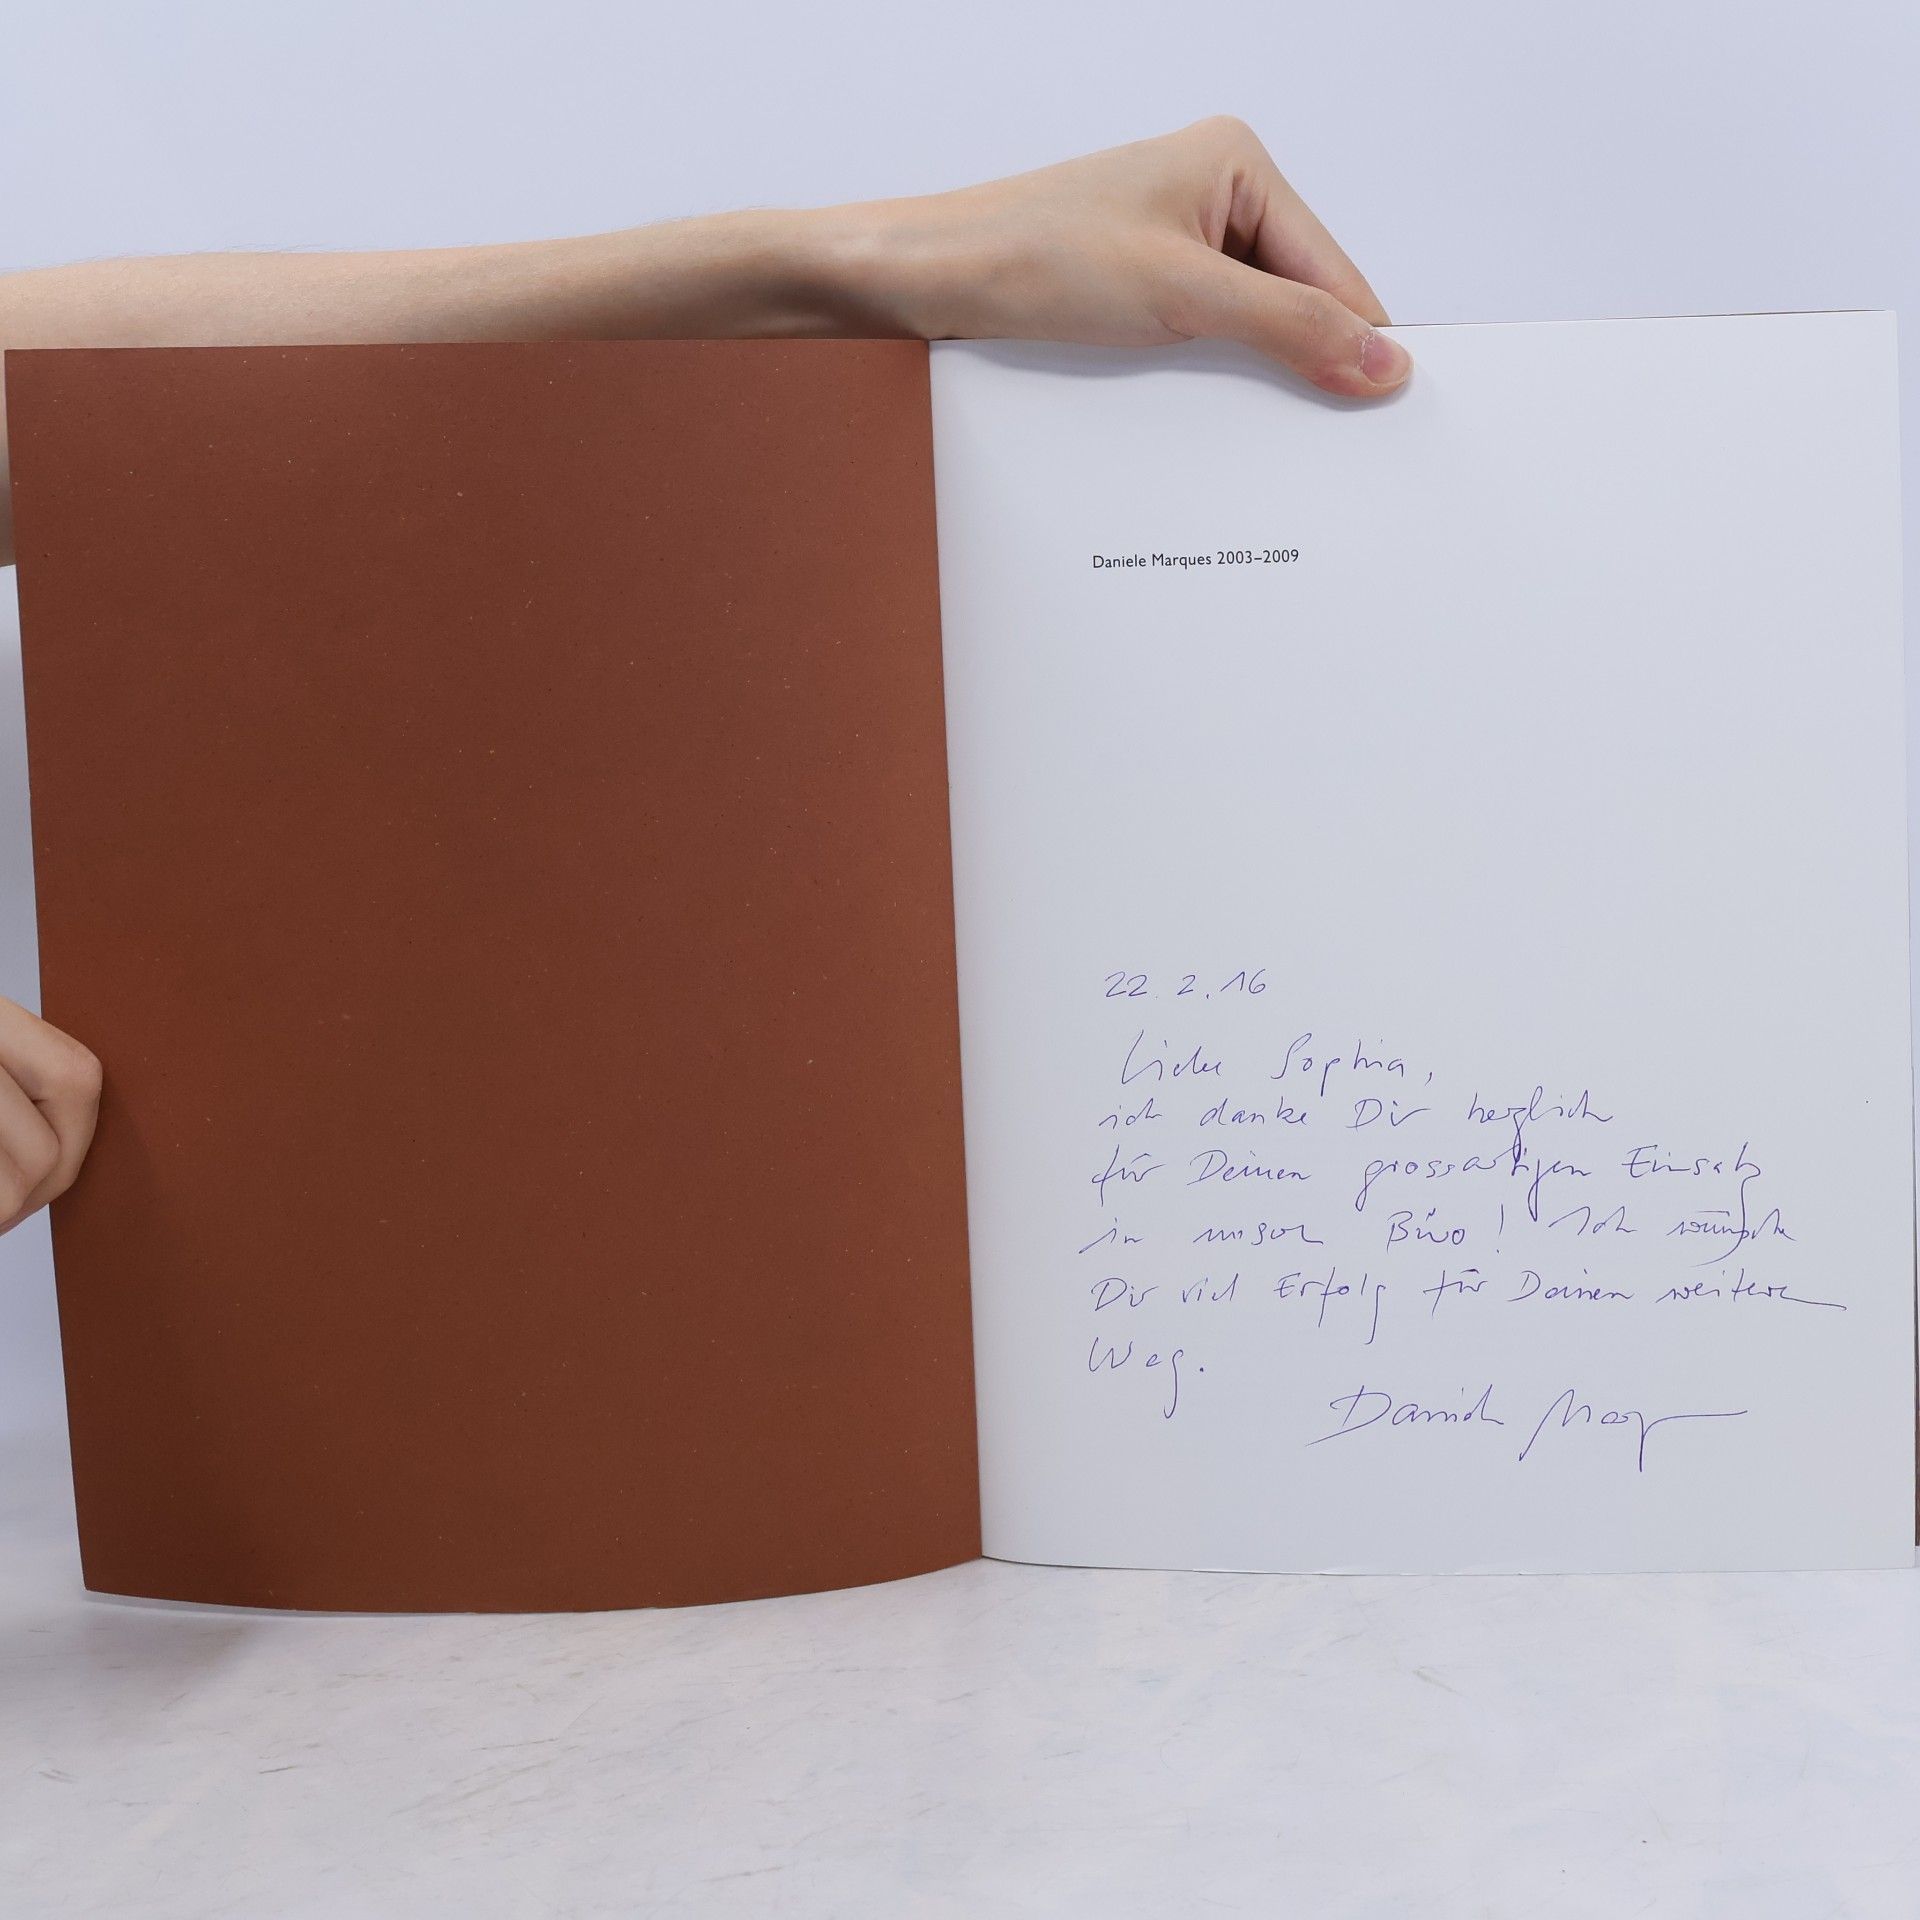 Daniele Marques 2003–2009
22.2.16
Liebe Sophia,
ich danke Dir herzlich
für Deinen grossartigen Einsatz
in unserem Büro! Ich wünsche
Dir viel Erfolg für Deinen weiteren
Weg.
Daniele Marques